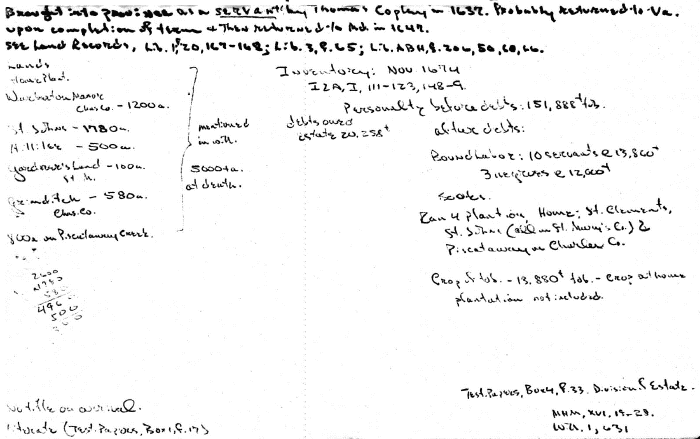 Brought into province as a SERVANT by Thomas Copley in 1637. Probably returned to Va.
upon completion of term & then returned to Md in 1647.
SEE Land Records, Lib. 1, 20, 167-168; Lib. 3, P. 65; Lib. ABH, P. 206, 50, 60, 66.
Lands
Home Plant.
Warburton Manor
Chas Co. - 1200a.
St. Johns - 1780a.
Hillilee - 500a.
Gardiner's Land - 100a.
St. M.
Grimditch - 580a.
Chas. Co.
800a on Piscataway Creek.
mentioned
in will
5000+a.
at death.
2600
1780
580
496
500
Inventory: Nov 1674
I2A, I, 111-123, 148-9.
Personalty before debts: 151,888# tob.
debts owed
estate 20,258#
after debts:
Bound Labor: 10 servants @ 13,800#
3 negroes @ 12,000#
Ran 4 plantion, Home; St. Clements,
St. Johns (all in St. Mary's Co.) &
Piscataway in Charles Co.
Crop of tob. - 13,880# tob. - crop at home
plantation not included.
No title on arrival.
literate (Test. Papers, Box 1, F. 17)
Test. Papers, Box 4, F. 33. Division of Estate.
MHM, XVI, 19-28.
Wills 1, 631